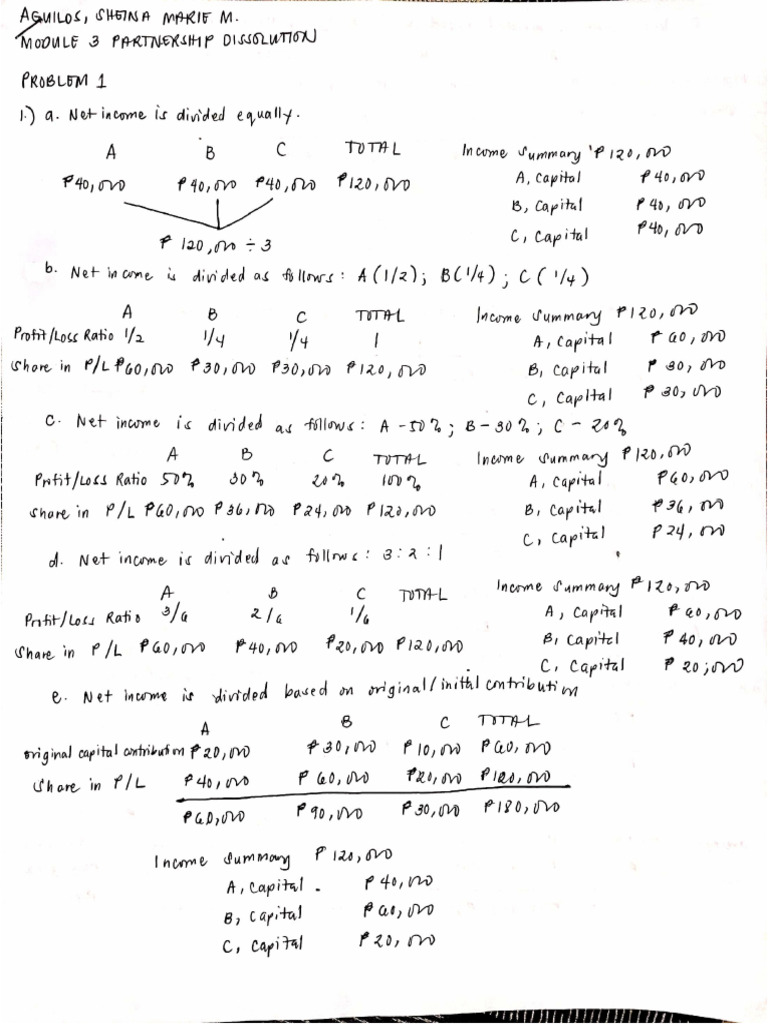 AGUILOS, SHEINA MARIE M.
MODULE 3 PARTNERSHIP DISSOLUTION
PROBLEM 1
1.) a. Net income is divided equally.
A B C TOTAL
₱40,000 ₱40,000 ₱40,000 ₱120,000
₱ 120,000 ÷ 3
Income Summary ₱120,000
A, Capital ₱40,000
B, Capital ₱40,000
C, Capital ₱40,000
b. Net income is divided as follows: A(1/2); B(1/4); C(1/4)
A B C TOTAL
Profit/Loss Ratio 1/2 1/4 1/4 1
Share in P/L ₱60,000 ₱30,000 ₱30,000 ₱120,000
Income Summary ₱120,000
A, Capital ₱60,000
B, Capital ₱30,000
C, Capital ₱30,000
c. Net income is divided as follows: A-50%; B-30%; C-20%
A B C TOTAL
Profit/Loss Ratio 50% 30% 20% 100%
Share in P/L ₱60,000 ₱36,000 ₱24,000 ₱120,000
Income Summary ₱120,000
A, Capital ₱60,000
B, Capital ₱36,000
C, Capital ₱24,000
d. Net income is divided as follows: 3:2:1
A B C TOTAL
Profit/Loss Ratio 3/6 2/6 1/6
Share in P/L ₱60,000 ₱40,000 ₱20,000 ₱120,000
Income Summary ₱120,000
A, Capital ₱60,000
B, Capital ₱40,000
C, Capital ₱20,000
e. Net income is divided based on original/initial contribution
A B C TOTAL
original capital contribution ₱20,000 ₱30,000 ₱10,000 ₱60,000
Share in P/L ₱40,000 ₱60,000 ₱20,000 ₱120,000
₱60,000 ₱90,000 ₱30,000 ₱180,000
Income Summary ₱120,000
A, Capital ₱40,000
B, Capital ₱60,000
C, Capital ₱20,000